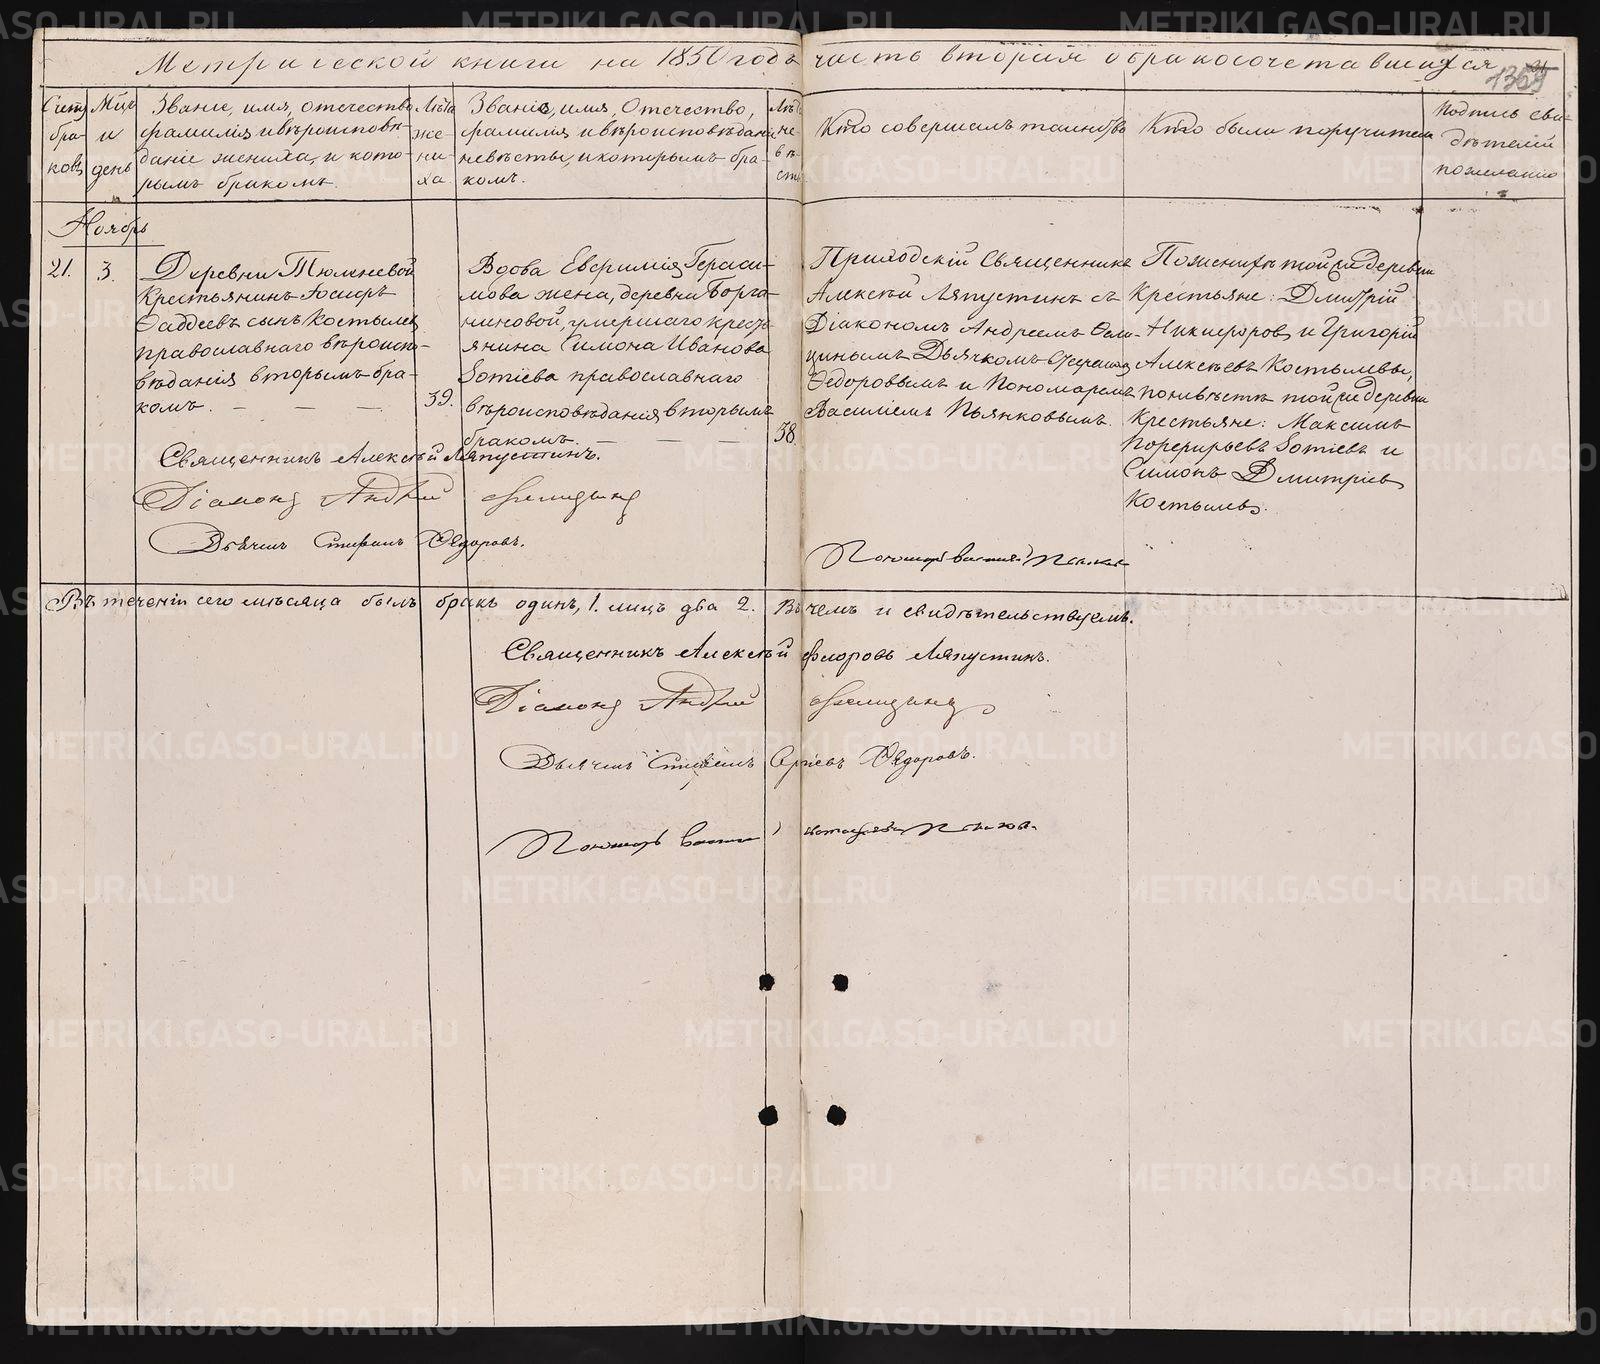 Метрической книги на 1850 годъ часть вторая о бракосочетавшихся
1365
Счетъ бра-ковъ
Мцъ и день
Званіе, имя, отечество
фамилія и вѣроисповѣ-
даніе жениха, и кото-
рымъ бракомъ.
Лѣта же-ни-ха.
Званіе, имя, Отечество,
фамилія и вѣроисповѣдан
невѣсты, и которымъ бра-
комъ.
Лѣт не-вѣ-сты
Кто совершалъ таинство
Кто были поручители
Подпись сви-
дѣтелей
по желанію
Ноябрь
21.
3.
Деревни Тюленевой
Крестьянинъ Іосифъ
Фаддеевъ сынъ Костылевъ
православнаго вѣроиспо-
вѣданія вторымъ бра-
комъ. — — —
39.
Вдова Евфимія Гераси-
мова жена, деревни
умершаго кресть-
янина Симона Иванова
Зотіева православнаго
вѣроисповѣданія вторымъ
бракомъ. — — —
38.
Приходскій Священникъ
Алексѣй Ляпустинъ съ
Діакономъ Андреемъ Фели-
цинымъ Дьячкомъ
Федоровымъ и Пономаремъ
Василіемъ Пьянковымъ.
По женихѣ той же деревни
Крестьяне: Дмитрій
Никифоровъ и Григорій
Алексѣевъ Костылевы,
по невѣстѣ той же деревни
Крестьяне: Максимъ
Порфирьевъ Зотіевъ и
Симонъ Дмитріевъ
Костылевъ.
Священникъ Алексѣй Ляпустинъ.
Діаконъ Андрей Фелицынъ
Дьячекъ Стефанъ Ѳедоровъ.
Пономарь Василій Пьянковъ
Въ теченіи сего мѣсяца былъ бракъ одинъ, 1. лицъ два 2. Въ чемъ и свидѣтельствуемъ.
Священникъ Алексѣй Флоровъ Ляпустинъ.
Діаконъ Андрей Фелицынъ
Дьячекъ Стефанъ Сергіевъ Ѳедоровъ.
Пономарь Василій Пьянковъ
METRIKI.GASO-URAL.RU